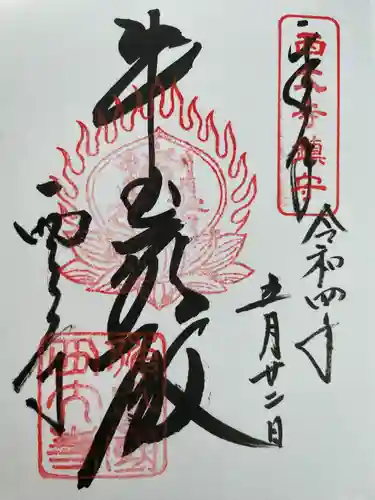 奉拝
西大寺鎮守
令和四年
五月廿二日
牛玉所殿
西大寺